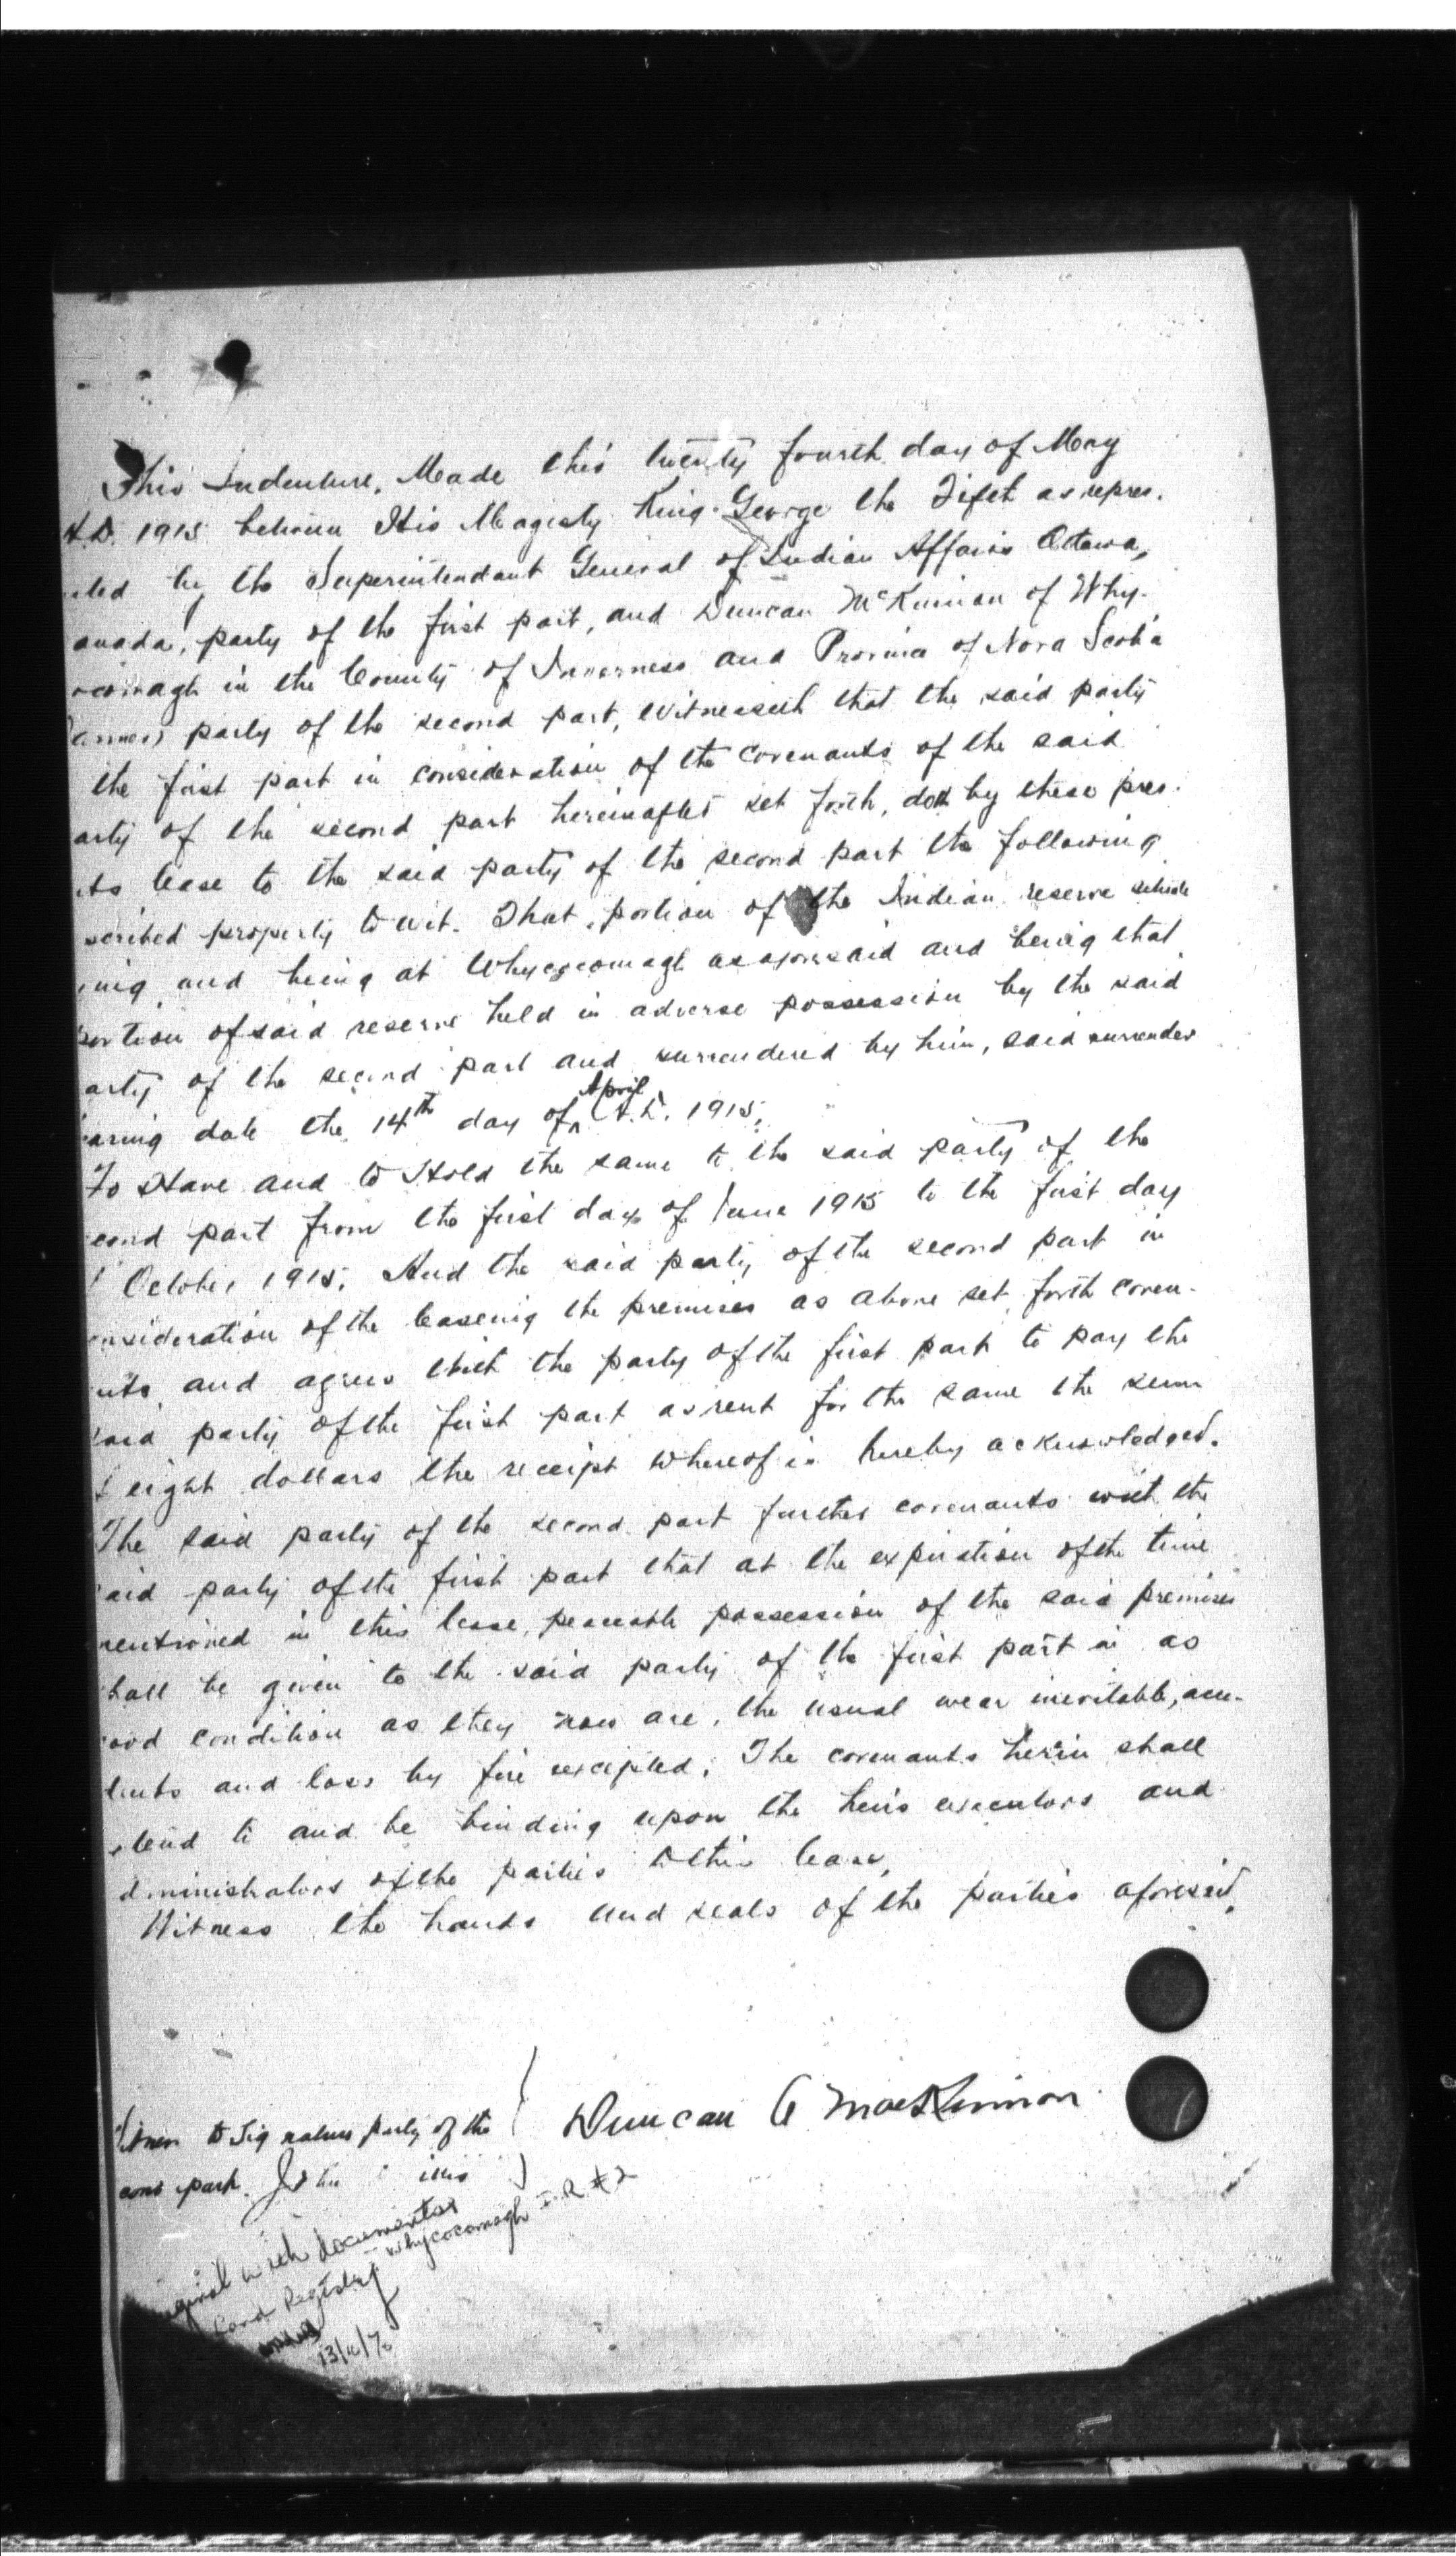 This Indenture, Made this twenty fourth day of May
A.D. 1915 between His Magisty King George the Fifth as repres.
nted by the Superintendant General of Indian Affairs Ottawa,
anada, party of the first part, and Duncan McKinnon of Why-
cocomagh in the County of Inverness and Province of Nova Scotia
armer, party of the second part, Witnesseth that the said party
the first part in consideration of the covenants of the said
arty of the second part hereinafter set forth, doth by these pres.
nts lease to the said party of the second part the following
scribed property to wit. That portion of the Indian reserve
ying and being at Whycocomagh as aforesaid and being that
portion of said reserve held in adverse possession by the said
arty of the second part and surrendered by him, said surrender
earing date the 14th day of April A.D. 1915.
To Have and to Hold the same to the said party of the
econd part from the first day of June 1915 to the first day
f October 1915. And the said party of the second part in
onsideration of the leaseing the premises as above set forth coven-
nts and agrees with the party of the first part to pay the
said party of the first part as rent for the same the sum
f eight dollars the receipt whereof is hereby acknowledged.
The said party of the second part further covenants with the
aid party of the first part that at the expiration of the time
mentioned in this lease, peaceable possession of the said premises
hall be given to the said party of the first part in as
ood condition as they now are, the usual wear inevitable, acci-
dents and loss by fire excepted. The covenants herein shall
xtend to and be binding upon the heirs executors and
dministrators of the parties to this lease.
Witness the hands and seals of the parties aforesaid.
Witness to Signature party of the
cond part.
Duncan A MacKinnon
riginal with documents
Land Registry - Whycocomagh I.R. #2